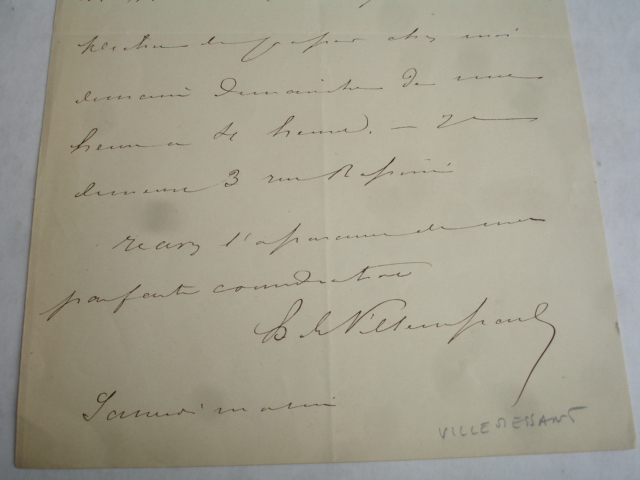 plaisir de passer chez moi
demain Dimanche de une
heure a 4 heures. — Je
demeure 3 rue Rossini
recevez l'assurance de ma
parfaite consideration
H de Villemessant
Samedi matin
VILLEMESSANT